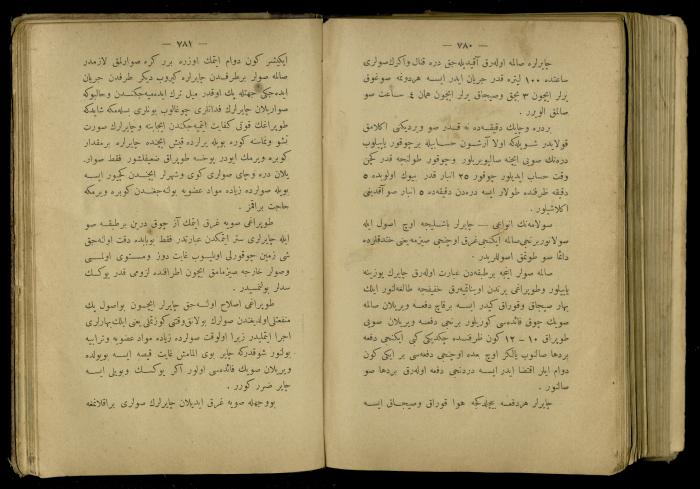 — ٧٨٠ —
چایرلره صالمه اوله‌رق آقیدیله‌جق دره قنال وآکرک صولری
ساعتده ١٠٠ لیتره قدر جریان ایدر ایسه هردونمه صوغوق
یرلر ایچون ٣ بچق وصیجاق یرلر ایچون همان ٤ ساعت صو
صالمق الویرر .
بردره وچایک دقیقه‌ده نه قدر صو ویردیکنی اکلامق
قولایدر شویله‌که اولا آرشون حسابیله برچوقور یاپیلوب
دره‌نک صویی ایچنه صالیویریلور وچوقور طولنجه قدر کچن
وقت حساب ایدیلور چوقور ٢٥ انبار قدر بیوک اولوبده ٥
دقیقه ظرفنده طولار ایسه دره‌دن دقیقه‌ده ٥ انبار صو آقدیغی
اکلاشیلور .
صولامه‌نک انواعی — چایرلر باشلیجه اوچ اصول ایله
صولانور برنجی صالمه ایکنجی غرق اوچنجی صیزمه یعنی خندقلرده
دائما صو طوتمق اصوللریدر .
صالمه صولر اینجه برطبقه‌دن عبارت اوله‌رق چایرک یوزینه
یاییلور وطوپراغی یرندن اویناتمیه‌رق خفیفجه طالغه‌لنور ایلک
بهار صیجاق وقوراق کیدر ایسه برقاچ دفعه ویریلان صالمه
صویک چوق فائده‌سی کوریلور برنجی دفعه ویریلان صویی
طوپراق ١٠ – ١٢ کون ظرفنده چکدیکی کبی ایکنجی دفعه
بردها صالنوب یالکز اوچ بعده اوچنجی دفعه‌سی بر ایکی کون
دوام ایلر اقتضا ایدر ایسه دردنجی دفعه اوله‌رق بردها صو
صالنور .
چایرلر هردفعه بیچلدکجه هوا قوراق وصیجاق ایسه
— ٧٨١ —
ایکیشر کون دوام ایتمک اوزره برر کره صوارلمق لازمدر
صالمه صولر برطرفدن چایرلره کیروب دیکر طرفدن جریان
ایده‌جکی جهتله پک اوقدر میل ترک ایده‌میه‌جکندن وحالبوکه
صواریلان چایرلرک فدانلری چوغالوب بونلری بسله‌مکه شایدکه
طوپراغک قوتی کفایت ایتمیه‌جکندن ایجابنه وچایرلرک صورت
نشو ونماسنه کوره بویله یرلرده قیش ایچنده چایرلره برمقدار
کوبره ویرمک ایودر یوخسه طوپراق ضعیفلشور فقط صوار
یلان دره وچای صولری کوی وشهرلر ایچندن کچیور ایسه
بویله صولرده زیاده مواد عضویه بولنه‌جغندن کوبره ویرمکه
حاجت براقمز .
طوپراغی صویه غرق ایتمک آز چوق درین برطبقه صو
ایله چایرلری ستر ایتمکدن عبارتدر فقط بوبابده دقت اوله‌جق
شی زمین چوقورلی اولمیوب غایت دوز ومستوی اولمسی
وصولر خارجه صیزمامق ایچون اطرافنده لزومی قدر یوکسک
سدلر بولنمسیدر .
طوپراغی اصلاح اوله‌جق چایرلر ایچون بواصول پک
منفعتلی اولدیغندن صولرک بولانق وقتی کوزتملی یعنی ایلک بهارلری
اجرا ایتملیدر زیرا اولوقت صولرده زیاده مواد عضویه وترابیه
بولنور شوقدرکه چایر بوی المامش غایت قیصه ایسه بویولده
ویریلان صویک فائده‌سی اولور اکر یوکسک وبویلی ایسه
چایر ضرر کورر .
بووجهله صویه غرق ایدیلان چایرلرک صولری براقلانمغه